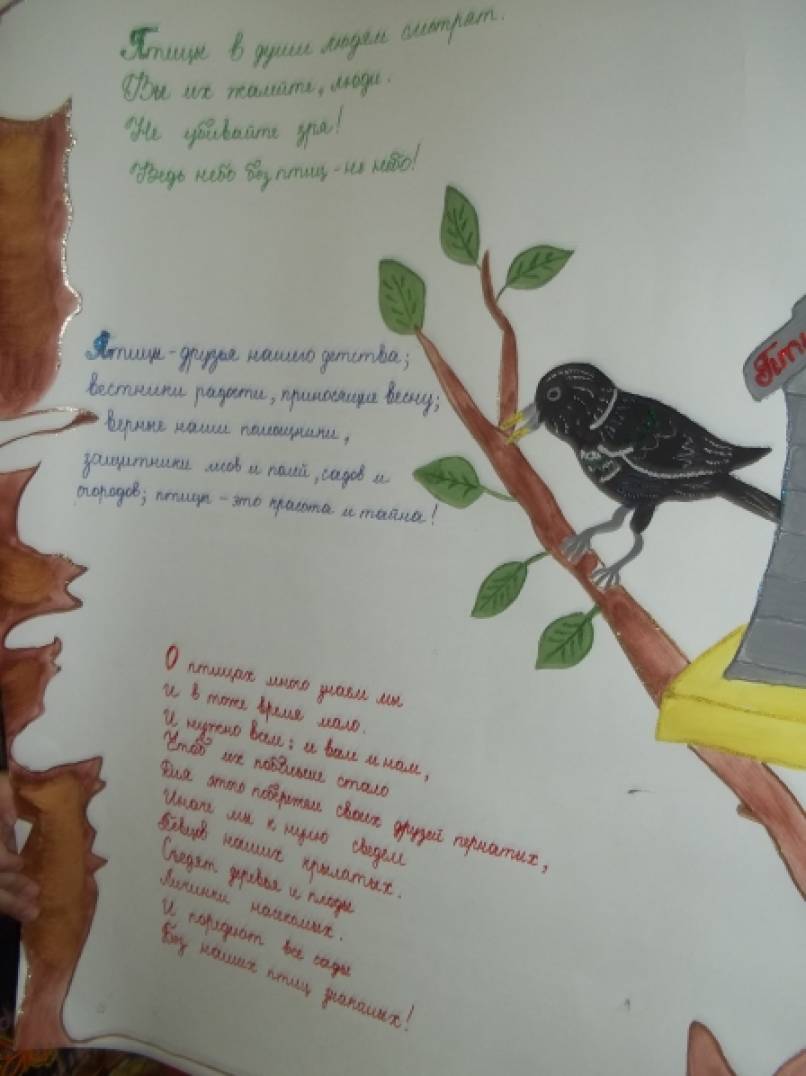 Птицы в души людям смотрят.
Вы их жалейте, люди.
Не убивайте зря!
Ведь небо без птиц - не небо!
Птицы - друзья нашего детства;
вестники радости, приносящие весну;
верные наши помощники,
защитники лесов и полей, садов и
огородов; птицы - это красота и тайна!
О птицах много знаем мы
И в тоже время мало.
И нужно всем; и вам и нам,
Чтоб их побольше стало
Для этого побережем своих друзей пернатых,
Иначе мы к нулю сведем
Певцов наших крылатых.
Съедят деревья и плоды
Личинки насекомых.
И поредеют все сады
Без наших птиц знакомых!